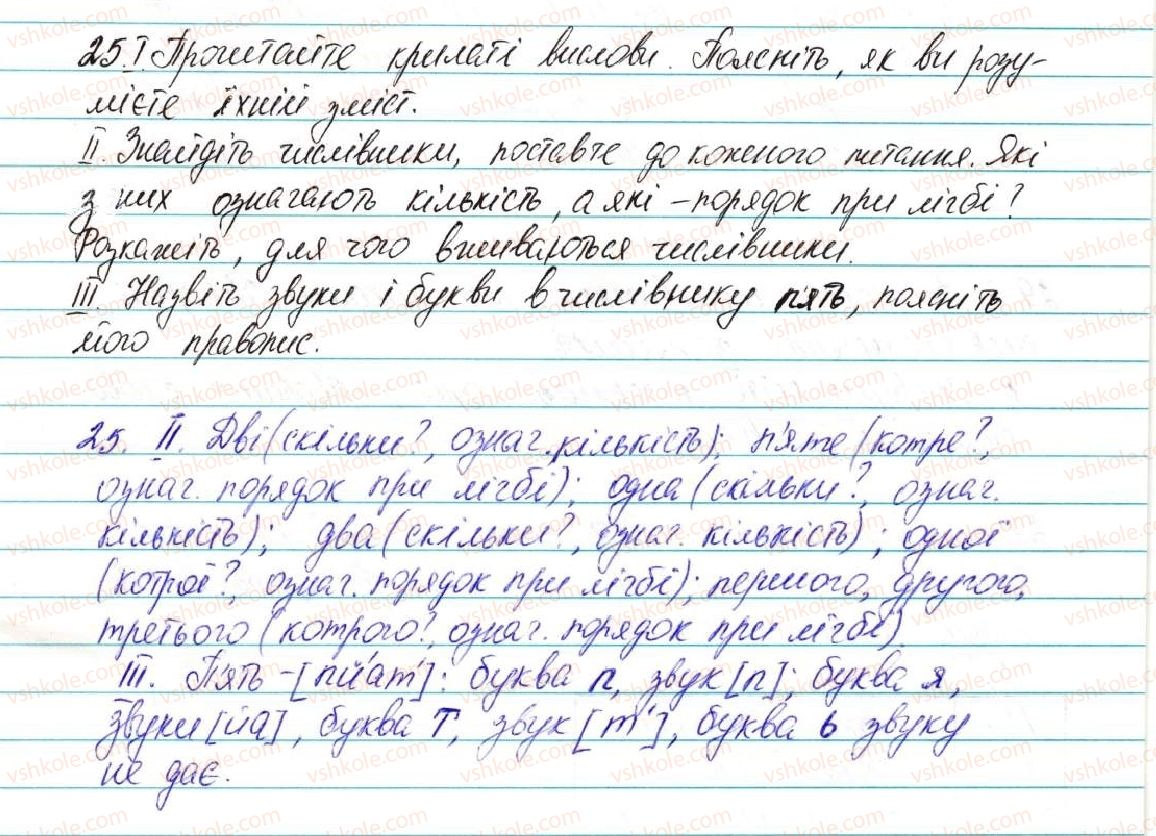 25.I Прочитайте крилаті вислови. Поясніть, як ви розу-
мієте їхній зміст.
II. Знайдіть числівники, поставте до кожного питання. Які
з них означають кількість, а які – порядок при лічбі?
Розкажіть, для чого вживаються числівники.
III Назвіть звуки і букви в числівнику п'ять, поясніть
його правопис.
25. II. Дві (скільки?, означ. кількість); п'яте (котре?,
означ. порядок при лічбі); одна (скільки?, означ.
кількість); два (скільки?, означ. кількість); одної
(котрої?, означ. порядок при лічбі); першого, другого,
третього (котрого?, означ. порядок при лічбі)
III. П'ять – [пйат']: буква п, звук [п]; буква я,
звуки [йа], буква т, звук [т'], буква ь звуку
не дає.
vshkole.com